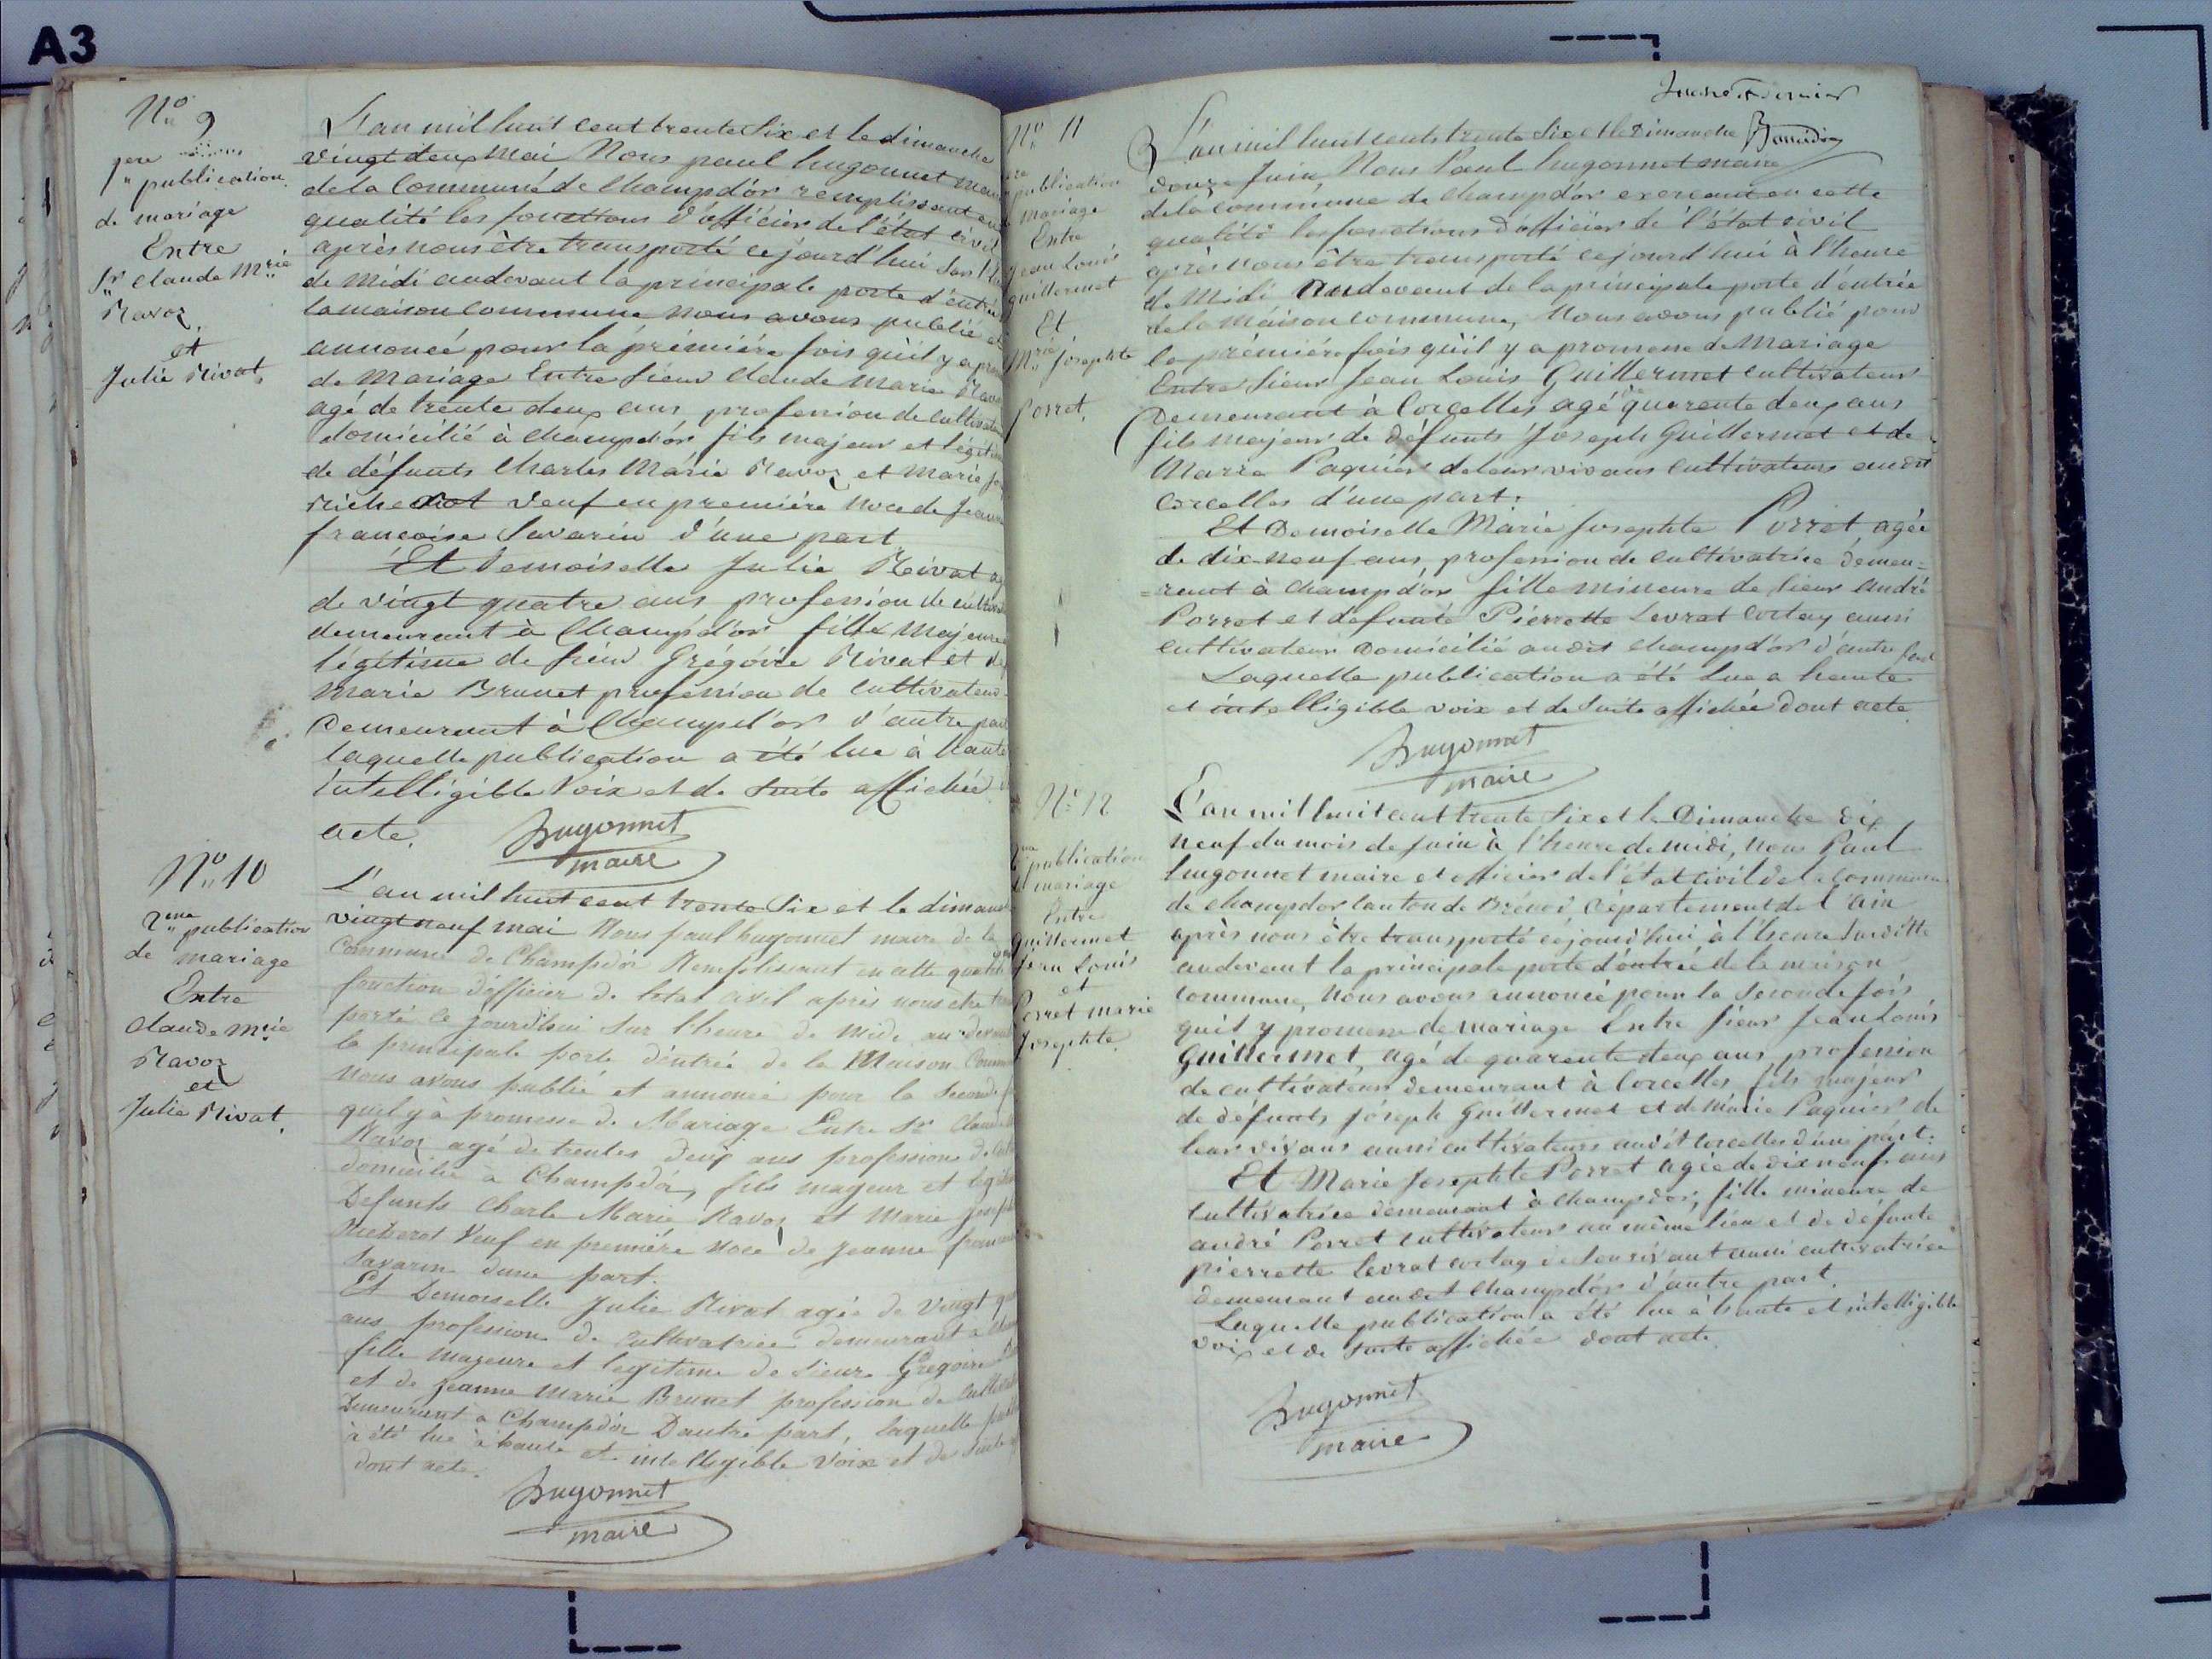 A3
No 9
1ere publication
de mariage
Entre
Sr Claude Mrie
Ravoz
et
Julie Nivat
L'an mil huit cent trente Six et le dimanche
vingt deux mai Nous paul hugonnet
de la Commune de Champd'or remplissant en
qualité les fonctions d'officier de l'état civil
après nous être transporté ce jourd'hui sur
de Midi audevant la principale porte d'entrée
la maison commune nous avons publié et
annoncé pour la première fois qu'il y a
de Mariage Entre Sieur Claude Marie
agé de trente deux ans profession de
domicilié à Champd'or fils majeur et
de défunts Charles Marie Ravoz et Marie
veuf en première noce de
françoise Savarin d'une part
Et Demoiselle Julie Nivat
de vingt quatre ans profession de
demeurant à Champd'or fille Majeure
légitime de sieur Grégoire Nivat et de
Marie Brunet profession de Cultivateur
Demeurant à Champd'or d'autre part
laquelle publication a été lue à haute
intelligible Voix et de suite affichée
acte.
hugonnet
maire
No 10
2me publication
de mariage
Entre
Claude Mrie
Ravoz
et
Julie Nivat.
L'an mil huit cent trente Six et le
vingt neuf mai Nous paul hugonnet maire de la
Commune de Champdor Remplissant en cette
fonction d'officier de letat civil après nous être
porté ce jourdhui Sur l'heure de midi au devant
la principale porte d'entrée de la Maison
Nous avons publié et annoncé pour la Seconde
quil y à promesse de Mariage Entre Sr Claude
Ravoz agé de trentes deux ans profession de
domicilié à Champdor, fils majeur et
Defunts Charle Marie Ravoz et Marie
Veuf en première noce de Jeanne
Savarin dune part.
Et Demoiselle Julie Nivat agée de Vingt
ans profession de Cultivatrice demeurant à
fille Majeure et legitime de Sieur Gregoire
et de Jeanne Marie Brunet profession de
Demeurant à Champdor Dautre part, laquelle
à été lue à haute et intelligible Voix et de Suite
dont acte.
hugonnet
maire
No 11
publication
mariage
Entre
Jean Louis
guillermet
Et
Mrie Josephte
Porret.
L'an mil huit cents trente Six et le Dimanche
douze Juin, Nous Paul hugonnet maire
dela commune de champd'or exerçant en cette
qualité les fonctions d'officier de l'état civil
après nous être transporté cejourd'hui à l'heure
de Midi audevant de la principale porte d'entrée
de la Maison commune, Nous avons publié pour
la prémiére fois qu'il y a promesse de Mariage
Entre Sieur Jean Louis Guillermet cultivateur
Demeurant à Corcelles agé quarente deux ans
fils majeur de défunts Joseph Guillermet et de
Marie Paquier deleur vivans cultivateurs audit
Corcelles d'une part.
Et Demoiselle Marie Josephte Porret agée
de dix-neuf ans, profession de cultivatrice demeu=
=rant à Champd'or fille mineure de sieur André
Porret et defunte Pierrette Levrat cortay aussi
cultivateur Domicilié audit champd'or d'autre part
Laquelle publication a été lue a haute
et intelligible voix et de Suite affichée dont acte
hugonnet
maire
No 12
2me publication
mariage
Entre
guillermet
jean Louis
et
Porret marie
Josephte.
L'an mil huit cent trente Six et le Dimanche dix
neuf du mois de juin à l'heure de midi, nous Paul
hugonnet maire et officier de l'état civil de la commune
de champdor canton de Brénod département de l'ain
après nous être transporté cejourd'hui à l'heure Susditte
audevant la principale porte d'entrée de la maison
commune, Nous avons annoncé pour la Seconde fois
qu'il y promesse de mariage Entre Sieur Jean Louis
Guillermet, agé de quarente deux ans profession
de cultivateur demeurant à Corcelles fils majeur
de défunts Joseph Guillermet et de Marie Paquier de
leur vivans aussi cultivateurs audit Corcelles d'une part.
Et Marie Josephte Porret agée de dix neuf ans
Cultivatrice demeurant à Champdor, fille mineure de
andré Porret cultivateur au même lieu et de défunte
pierrette levrat cortay de son vivant aussi cultivatrice
demeurant audit Champd'or d'autre part.
Laquelle publication a été lue à haute et intelligible
voix et de Suite affichée dont acte
hugonnet
maire